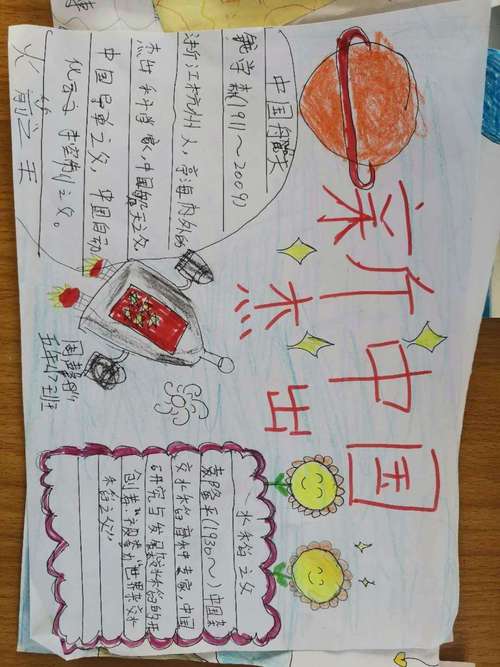 新中国
杰出
中国航天
钱学森(1911~2009)
浙江杭州人，享海内外的
杰出科学家，中国航天之父
中国导弹之父，中国自动
化之父
火箭之王
五
班
水稻之父
袁隆平(1930~)中国杂
交水稻育种专家，中国
研究与发展杂交水稻的开
创者，被誉为"世界杂交水
稻之父"